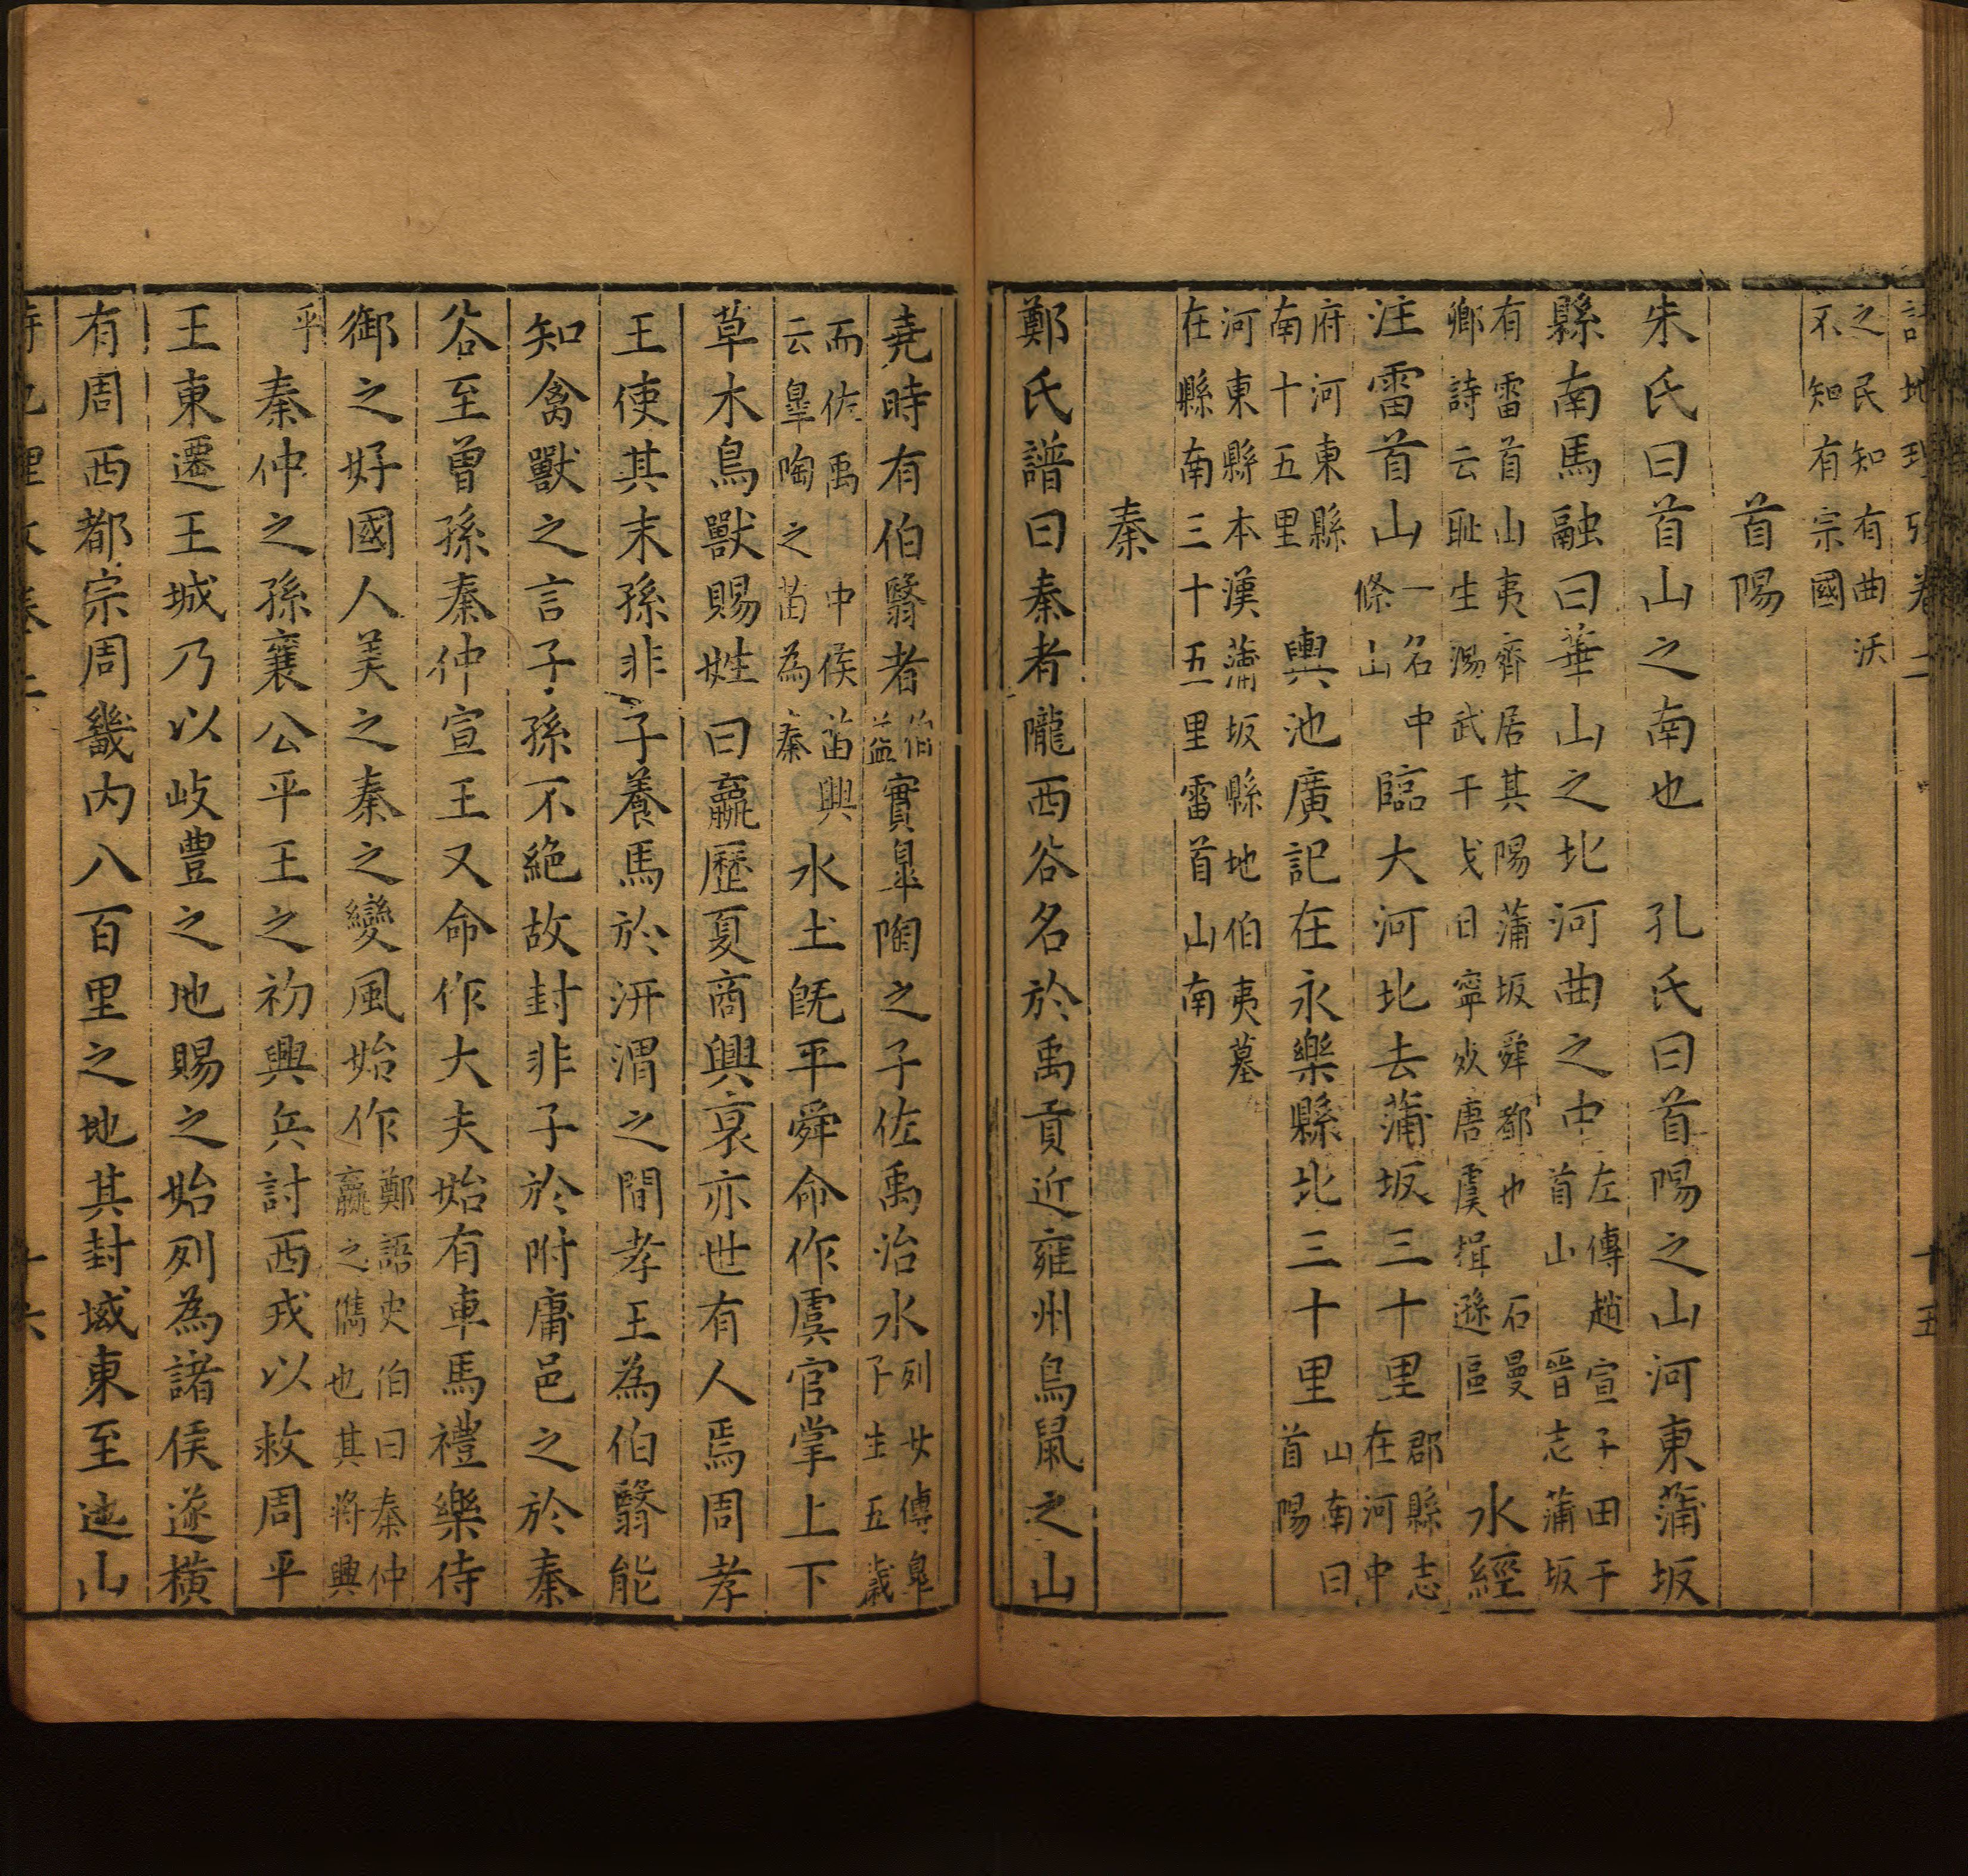 詩地理攷卷二　十五
之民知有曲沃
不知有宗國
首陽
朱氏曰首山之南也　孔氏曰首陽之山河東蒲坂
縣南馬融曰華山之北河曲之中左傳趙宣子田于首山　晉志蒲坂
有雷首山夷齊居其陽蒲坂舜都也　石曼鄉詩云耻生湯武干戈日寧死唐虞揖遜區　水經
注雷首山一名中條山臨大河北去蒲坂三十里郡縣志在河中
府河東縣南十五里　輿池廣記在永樂縣北三十里山南曰首陽
河東縣本漢蒲坂縣地伯夷墓
在縣南三十五里雷首山南
秦
鄭氏譜曰秦者隴西谷名於禹貢近雍州鳥鼠之山
堯時有伯翳者伯益實皐陶之子佐禹治水列女傳皐下生五歲
而佐禹　中侯苗興云皐陶之苗為秦　水土旣平舜命作虞官掌上下
草木鳥獸賜姓曰嬴歷夏商興衰亦世有人焉周孝
王使其末孫非子養馬於汧渭之間孝王為伯翳能
知禽獸之言子孫不絶故封非子於附庸邑之於秦
谷至曾孫秦仲宣王又命作大夫始有車馬禮樂侍
御之好國人美之秦之變風始作鄭語史伯曰秦仲嬴之儁也其將興
乎　秦仲之孫襄公平王之初興兵討西戎以救周平
王東遷王城乃以岐豊之地賜之始列為諸侯遂橫
有周西都宗周畿内八百里之地其封域東至迆山
詩地理攷卷二　十六